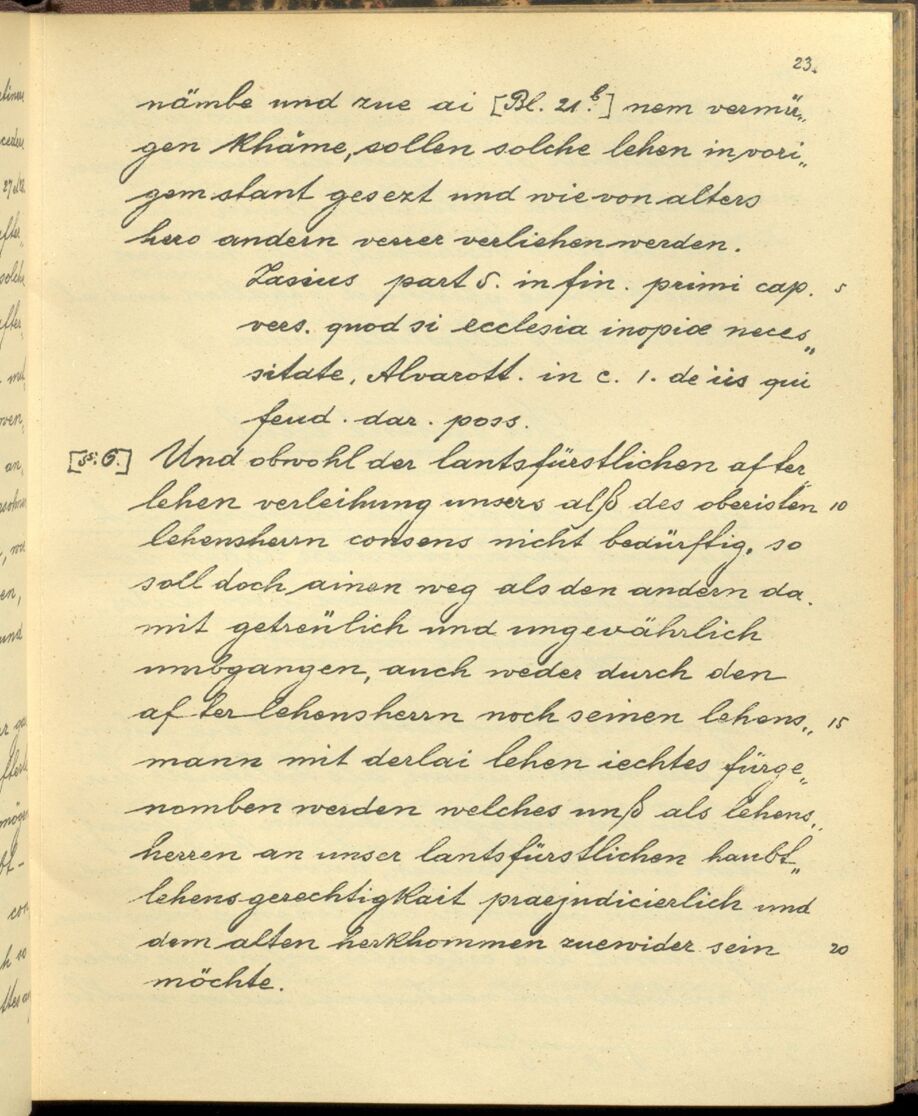 23.
nämbe und zue ai [Bl. 21 b.] nem vermü„
gen khäme, sollen solche lehen in vori„
gem stant gesezt und wie von alters
hero andern verrer verliehen werden.
Zasius part 5. in fin. primi cap. 5
vers. quod si ecclesia inopiæ neces„
sitate, Alvarott. in c. 1. de iis qui
feud. dar. poss.
[§. 6.] Und obwohl der lantsfürstlichen after
lehen verleihung unsers alß des oberisten 10
lehensherrn consens nicht bedürftig, so
soll doch ainen weg als den andern da„
mit getreülich und ungewährlich
umbgangen, auch weder durch den
after lehensherrn noch seinen lehens„ 15
mann mit derlai lehen iechtes fürge„
nomben werden welches unß als lehens„
herren an unser lantsfürstlichen haubt„
lehensgerechtigkait praejudicierlich und
dem alten herkhommen zuewider sein 20
möchte.